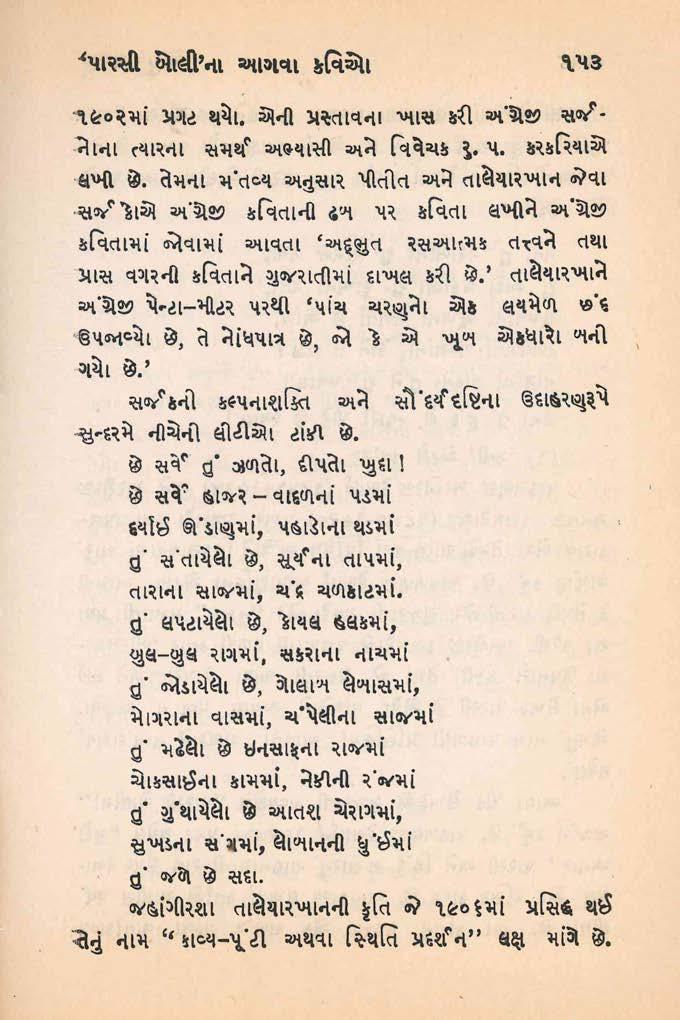 ‘પારસી બોલી’ના આગવા કવિઓ ૧૫૩
૧૯૦૨માં પ્રગટ થયો. એની પ્રસ્તાવના ખાસ કરી અંગ્રેજી સર્જ-
નોના ત્યારના સમર્થ અભ્યાસી અને વિવેચક રુ. પ. કરકરિયાએ
લખી છે. તેમના મંતવ્ય અનુસાર પીતીત અને તાલેયારખાન જેવા
સર્જકોએ અંગ્રેજી કવિતાની ઢબ પર કવિતા લખીને અંગ્રેજી
કવિતામાં જોવામાં આવતા ‘અદ્ભુત રસઆત્મક તત્ત્વને તથા
પ્રાસ વગરની કવિતાને ગુજરાતીમાં દાખલ કરી છે.’ તાલેયારખાને
અંગ્રેજી પેન્ટા–મીટર પરથી ‘પાંચ ચરણનો એક લયમેળ છંદ
ઉપજાવ્યો છે, તે નોંધપાત્ર છે, જો કે એ ખૂબ એકધારો બની
ગયો છે.’
સર્જકની કલ્પનાશક્તિ અને સૌંદર્યદષ્ટિના ઉદાહરણરૂપે
સુન્દરમે નીચેની લીટીઓ ટાંકી છે.
છે સર્વે તું ઝળતો, દીપતો ખુદા!
છે સર્વે હાજર – વાદળનાં પડમાં
દર્યાઈ ઊંડાણમાં, પહાડોના થડમાં
તું સંતાયેલો છે, સૂર્યના તાપમાં,
તારાના સાજમાં, ચંદ્ર ચળકાટમાં.
તું લપટાયેલો છે, કોયલ હલકમાં,
બુલ-બુલ રાગમાં, સકરાના નાચમાં
તું જોડાયેલો છે, ગોલાબ લેબાસમાં,
મોગરાના વાસમાં, ચંપેલીના સાજમાં
તું મઢેલો છે ઇનસાફના રાજમાં
ચોકસાઈના કામમાં, નેકીની રંજમાં
તું ગુંથાયેલો છે આતશ ચેરાગમાં,
સુખડના સંગમાં, લોબાનની ધુંઈમાં
તું જળે છે સદા.
જહાંગીરશા તાલેયારખાનની કૃતિ જે ૧૯૦૬માં પ્રસિદ્ધ થઈ
તેનું નામ “કાવ્ય–પૂંટી અથવા સ્થિતિ પ્રદર્શન” લક્ષ માંગે છે.